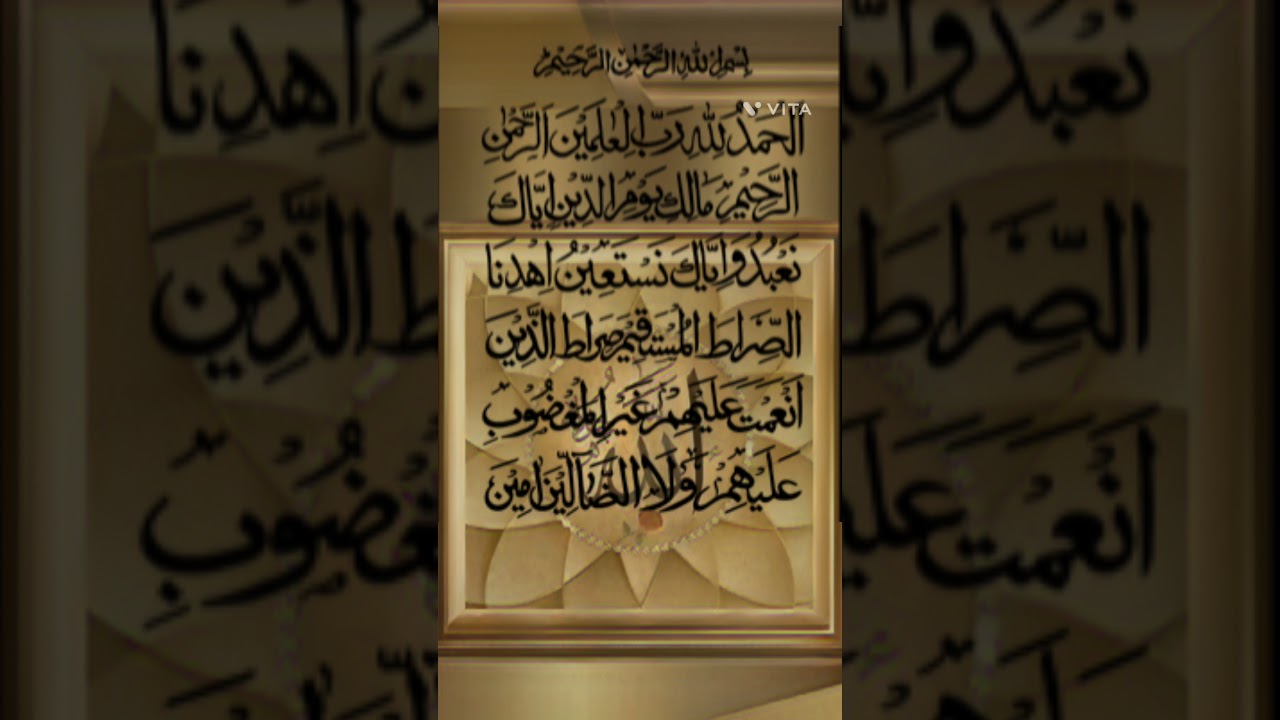 بِسْمِ اللّٰهِ الرَّحْمٰنِ الرَّحِيْمِ
VITA
الْحَمْدُ لِلّٰهِ رَبِّ الْعٰلَمِيْنَ الرَّحْمٰنِ
الرَّحِيْمِ مَالِكِ يَوْمِ الدِّيْنِ اِيَّاكَ
نَعْبُدُ وَاِيَّاكَ نَسْتَعِيْنُ اِهْدِنَا
الصِّرَاطَ الْمُسْتَقِيْمَ صِرَاطَ الَّذِيْنَ
اَنْعَمْتَ عَلَيْهِمْ غَيْرِ الْمَغْضُوْبِ
عَلَيْهِمْ وَلَا الضَّآلِّيْنَ اٰمِيْن